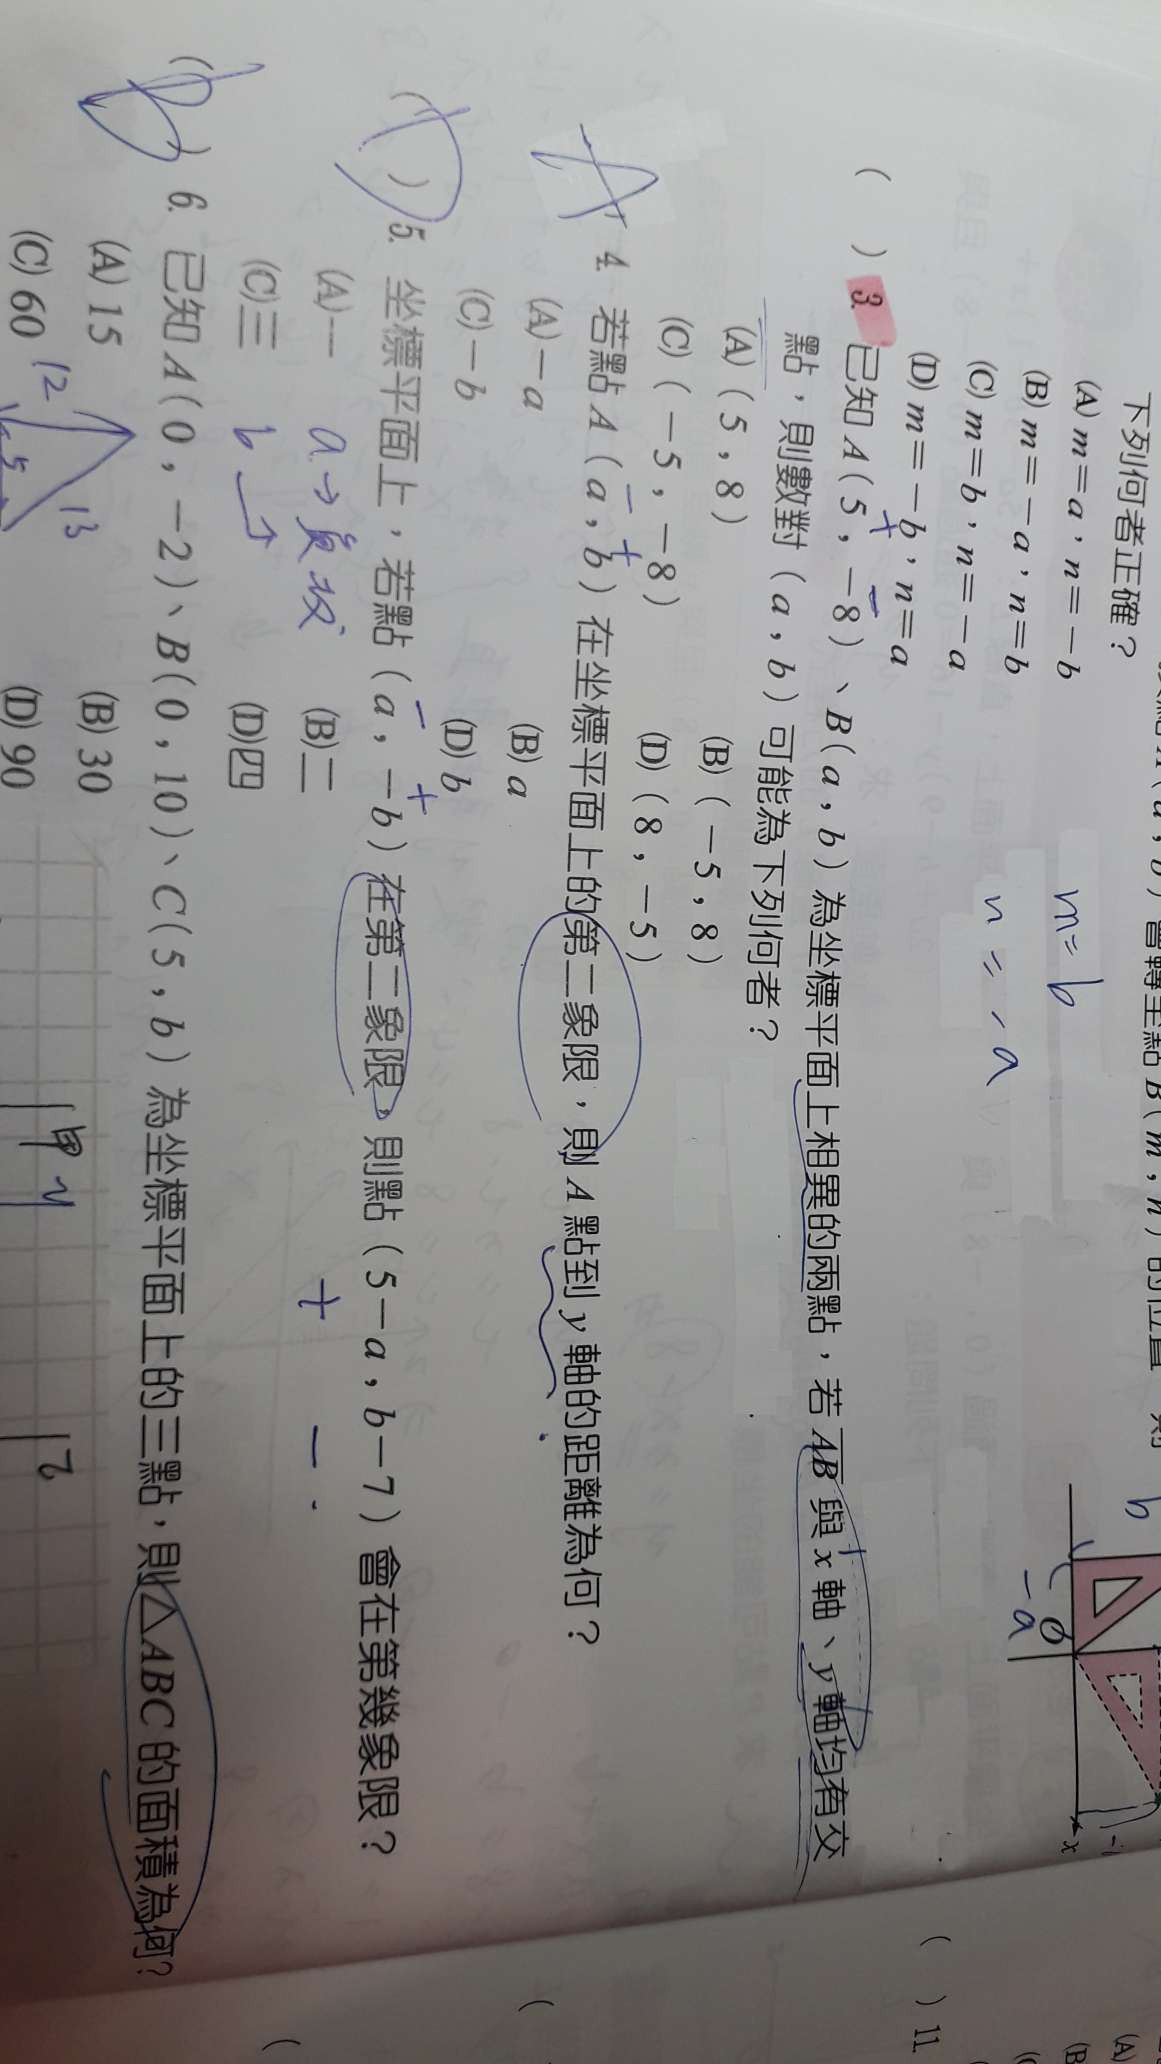 下列何者正確?
(A) m=a,n=-b
(B) m=-a,n=b
(C) m=b,n=-a
(D) m=-b,n=a
m=b
n=-a
b
-a
x
( ) 3. 已知 A(5,-8)、B(a,b)為坐標平面上相異的兩點,若 AB 與 x 軸、y 軸均有交
+ -
點,則數對(a,b)可能為下列何者?
(A)(5,8) (B)(-5,8)
(C)(-5,-8) (D)(8,-5)
A 4. 若點 A(a,b)在坐標平面上的第二象限,則 A 點到 y 軸的距離為何?
- +
(A) -a (B) a
(C) -b (D) b
(D) 5. 坐標平面上,若點(a,-b)在第二象限,則點(5-a,b-7)會在第幾象限?
- + + -
(A)一 (B)二
(C)三 (D)四
a→負
b
(B) 6. 已知 A(0,-2)、B(0,10)、C(5,b)為坐標平面上的三點,則△ABC 的面積為何?
(A) 15 (B) 30
(C) 60 (D) 90
12 13
5
( ) 11.
(A)
(B
(
(